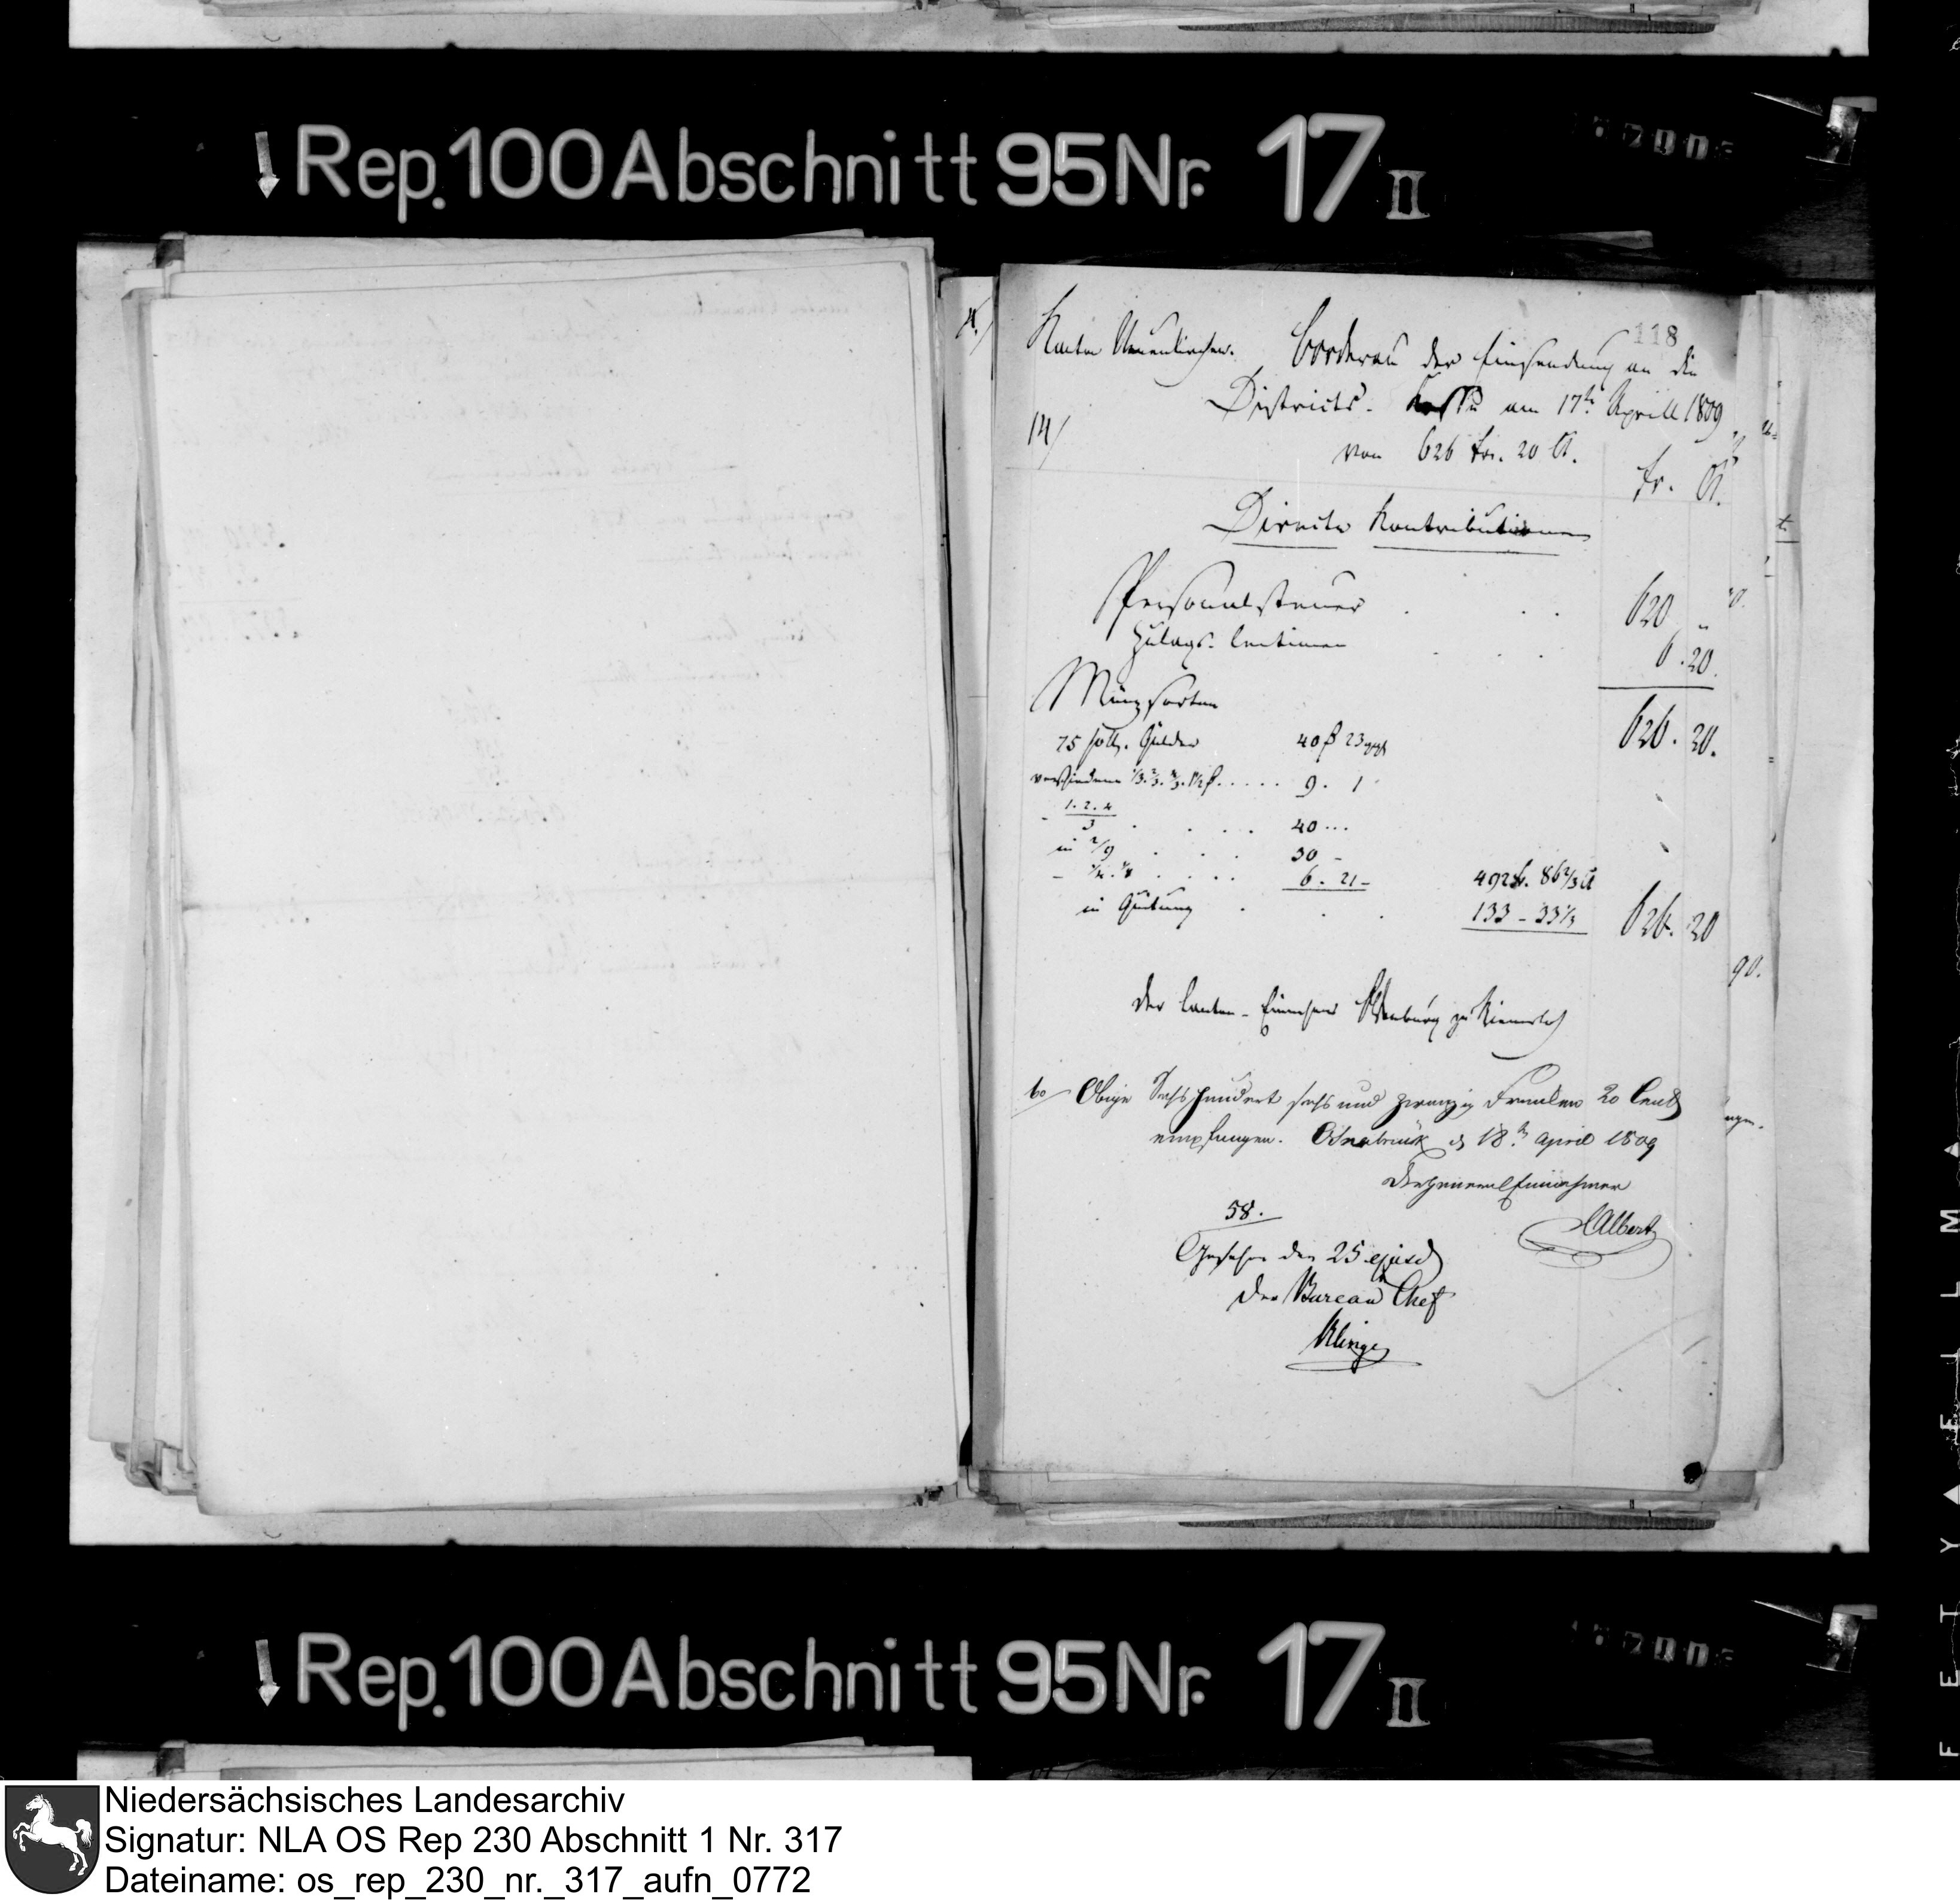 Rep. 100 Abschnitt 95 Nr. 17 II
118
Kanton Neuenkirchen. Borderau der Einsendung an die
Districts-Kasse am 17t. Aprill 1809
14/
von 626 Fr. 20 Ct.
Fr. Ct.
Directe Kontributionen
Personalsteuer . . . 620 "
Zulags-Centimen . . . 6. 20.
626. 20.
Münzsorten
75 holl. Gulden 40 23
verschiedene 9. 1
1. 2. 4
3 . . . . 40 ...
in 2/9 . . . 30 -
6. 21 - 492 Fr. 86 2/3 Ct
in Quitung . . . 133 - 33 1/3 626. 20
der Canton-Einnehmer zu Riemsloh
60 Obige Sechshundert sechs und zwanzig Franken 20 Cent
empfangen. Osnabrück d 18t April 1809
Der General Einnehmer
Albert
58.
Gesehen den 25 ejusd
Der Bureau Chef
Klinge
Rep. 100 Abschnitt 95 Nr. 17 II
Niedersächsisches Landesarchiv
Signatur: NLA OS Rep 230 Abschnitt 1 Nr. 317
Dateiname: os_rep_230_nr._317_aufn_0772